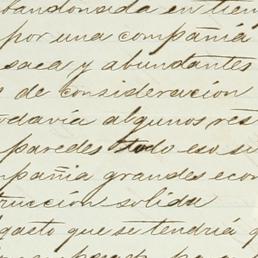 abandonada en tiem
por una compañía
saca y abundantes
de consideración
todavía algunos res
paredes todo eso se
mpañia grandes econ
trucción solida
gasto que se tendría q